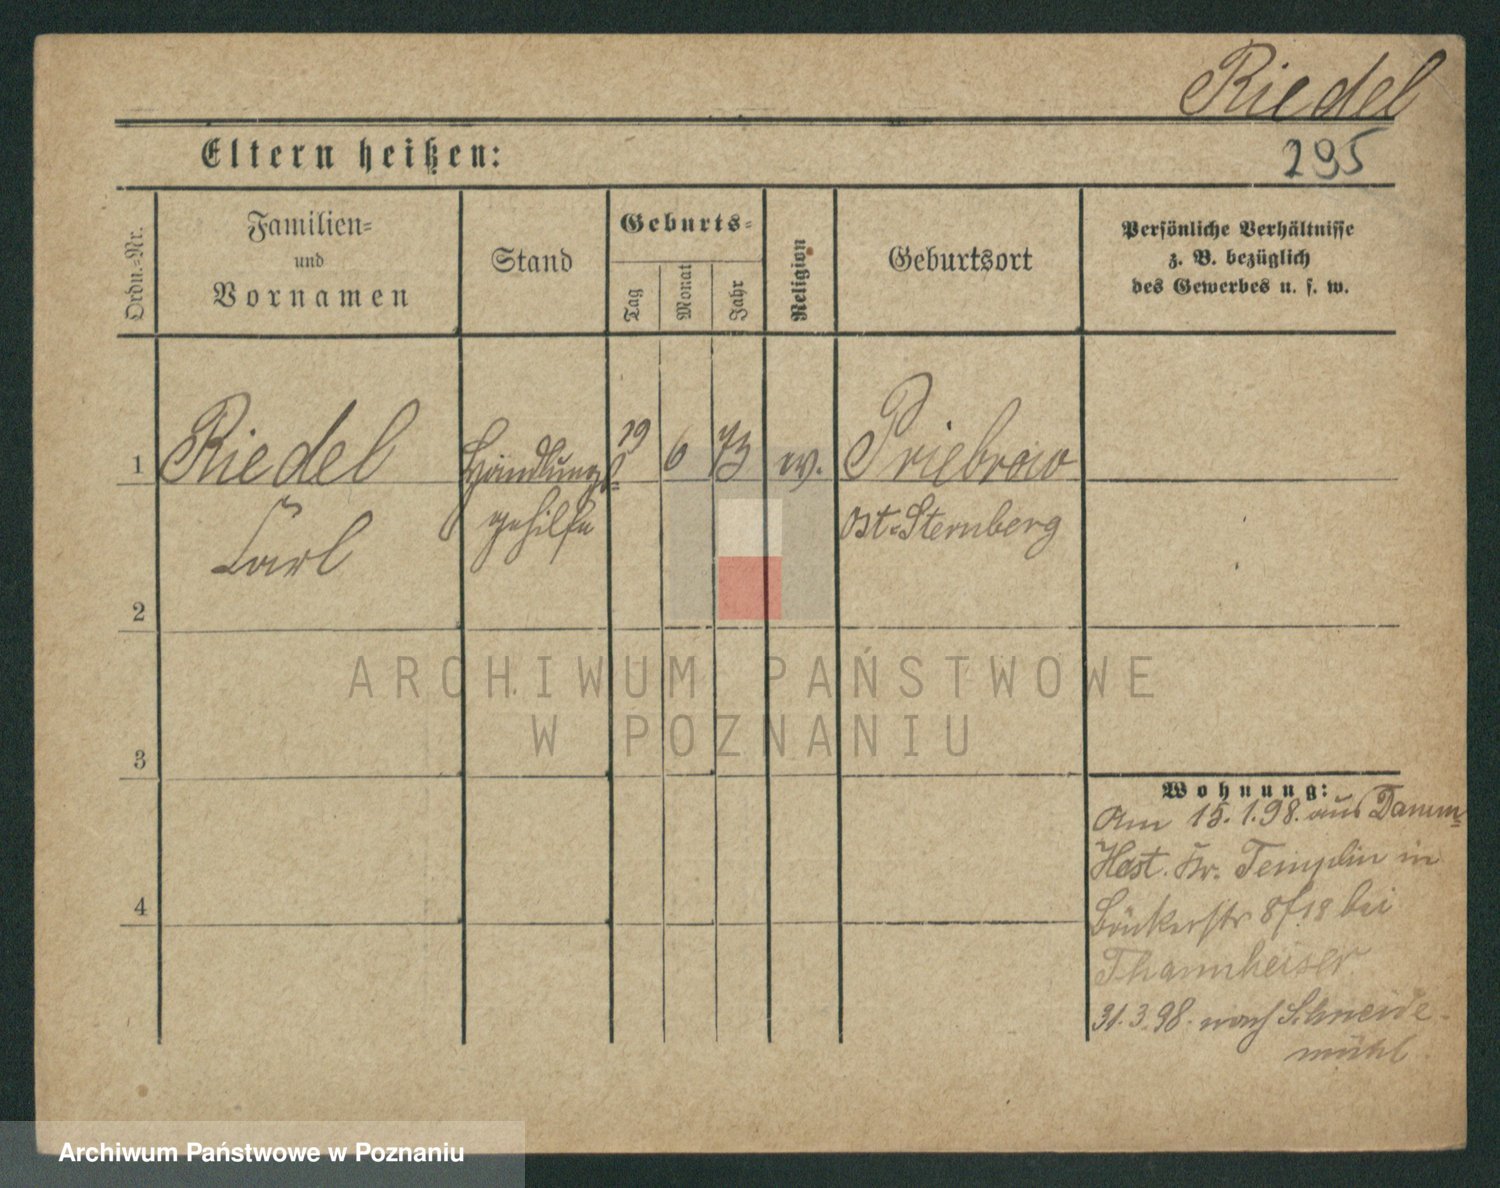 Riedel
Eltern heißen:
295
Ordn.-Nr.
Familien-
und
Vornamen
Stand
Geburts-
Tag
Monat
Jahr
Religion
Geburtsort
Persönliche Verhältnisse
z. B. bezüglich
des Gewerbes u. s. w.
1
Riedel
Handlungs-
19
6
73
ev.
Priebrow
gehilfe
Ost-Sternberg
Carl
2
ARCHIWUM PAŃSTWOWE
W POZNANIU
3
Wohnung:
Am 15.1.98. aus Damm-
Hast. Kr. Templin in
4
8/18 bei
Thannheiser
31.3.98. nach Schneide-
mühl
Archiwum Państwowe w Poznaniu